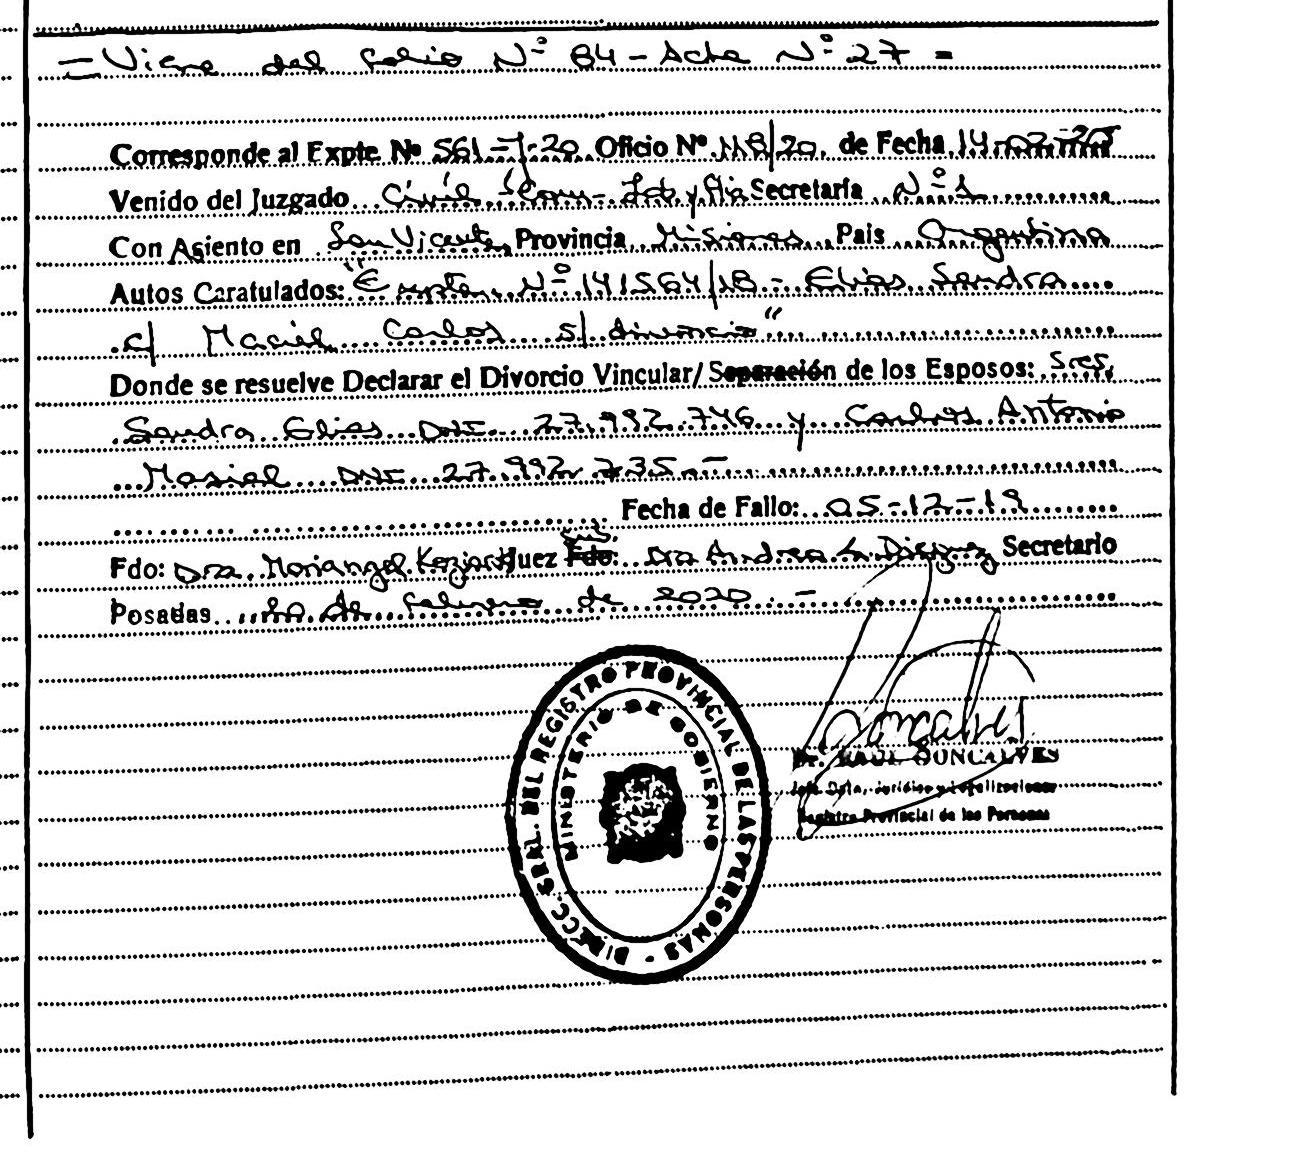 = Viene del folio Nº 84 - Acta Nº 27 =
Corresponde al Expte Nº 561-J-20 Oficio Nº 118/20. de Fecha 14-02-20
Venido del Juzgado Civil, Com- Lab y flia Secretaría Nº 1
Con Asiento en San Vicente Provincia Misiones País Argentina
Autos Caratulados: "Expte. Nº 141564/18 - Elias Sandra
c/ Maciel Carlos s/ divorcio"
Donde se resuelve Declarar el Divorcio Vincular/ Separación de los Esposos: Sres.
Sandra Elias DNI. 27.992.746 y Carlos Antonio
Masial DNI 27.992.735.-
Fecha de Fallo: 05-12-19
Sub.
Fdo: Dra. Mariangel Juez Fdo: Dra Andrea Secretario
Posadas 20 de febrero de 2020.-
DIRECC. GRAL. DEL REGISTRO PROVINCIAL DE LAS PERSONAS
MINISTERIO DE GOBIERNO
Goncalves
Dr. RAUL GONCALVES
Jefe Dpto. Jurídico y Legalizaciones
Registro Provincial de las Personas